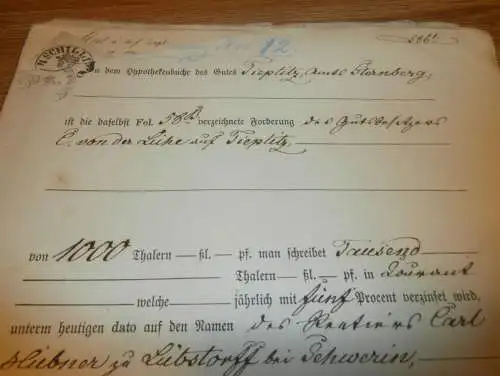 SCHILLING
No. 12.
In dem Hypothekenbuche des Gutes Tieplitz, Amts Sternberg,
ist die daselbst Fol. 58 verzeichnete Forderung des Gutsbesitzers
E. von der Lühe auf Tieplitz,
von 1000 Thalern — ßl. — pf. man schreibet Tausend
Thalern — ßl. — pf. in Courant
welche jährlich mit fünf Procent verzinset wird,
unterm heutigen dato auf den Namen des Rentiers Carl
Hübner zu Lübstorff bei Schwerin,